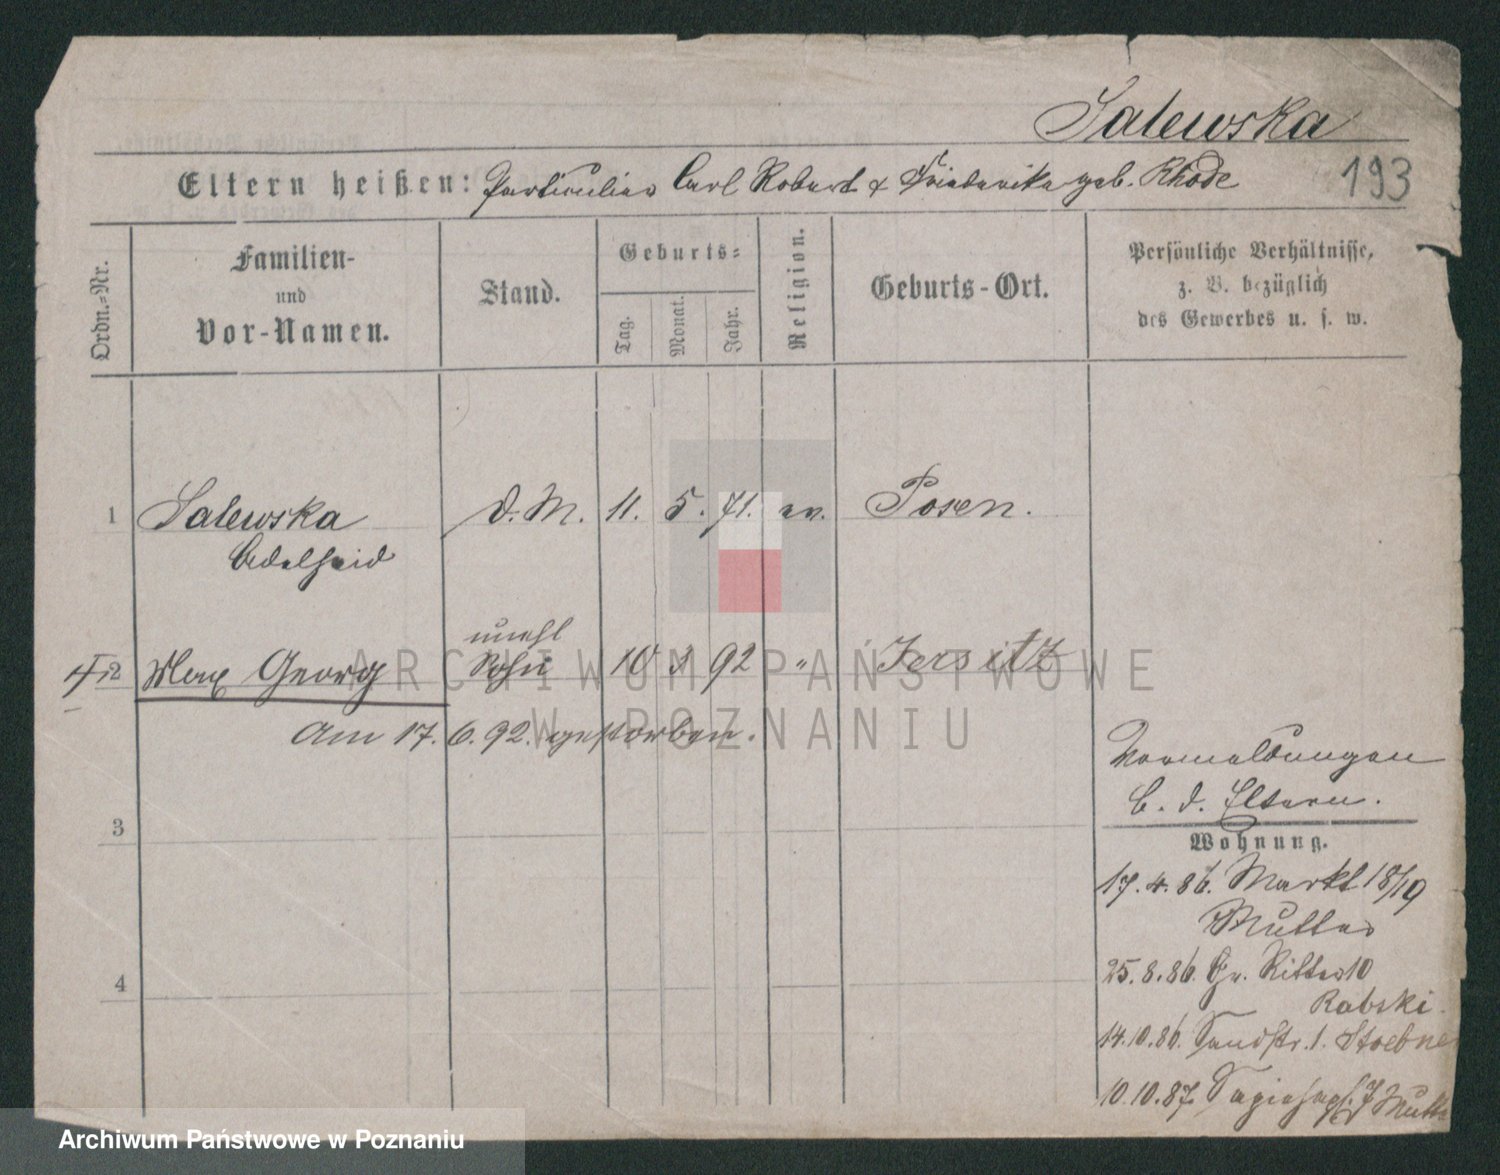 Salewska
Eltern heißen: Particulier Carl Robert & Friederike geb. Rhode
193
Ordn.-Nr.
Familien-
und
Vor-Namen.
Stand.
Geburts-
Tag.
Monat.
Jahr.
Religion.
Geburts-Ort.
Persönliche Verhältnisse,
z. B. bezüglich
des Gewerbes u. s. w.
1 Salewska D. M. 11. 5. 71. ev. Posen.
Adelheid
unehl
2 Max Georg Sohn 10 3 92 " Jersitz
am 17. 6. 92. gestorben.
Vormeldungen
b. d. Eltern.
3
Wohnung.
17. 4. 86. Markt 18/19
Mutter
4
25. 8. 86. Gr. Ritter 10
Rabski.
14. 10. 86. Sandstr. 1. Stoebner
10. 10. 87. 7
ARCHIWUM PAŃSTWOWE
W POZNANIU
Archiwum Państwowe w Poznaniu